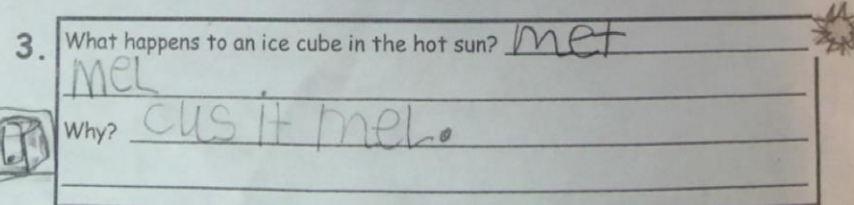 3. What happens to an ice cube in the hot sun? met
mel
Why? cus it mel.